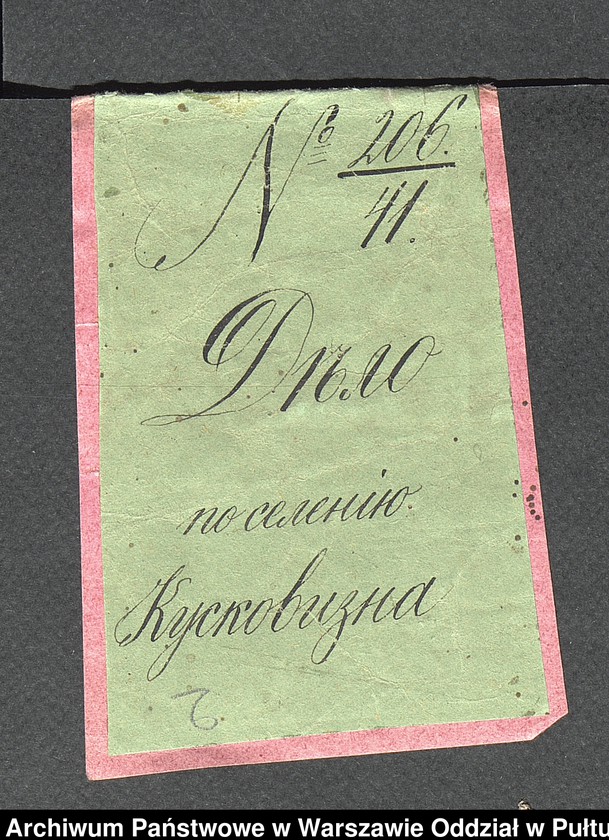 № 206.
41.
Дѣло
по селенію
Кусковизна
Archiwum Państwowe w Warszawie Oddział w Pułtu